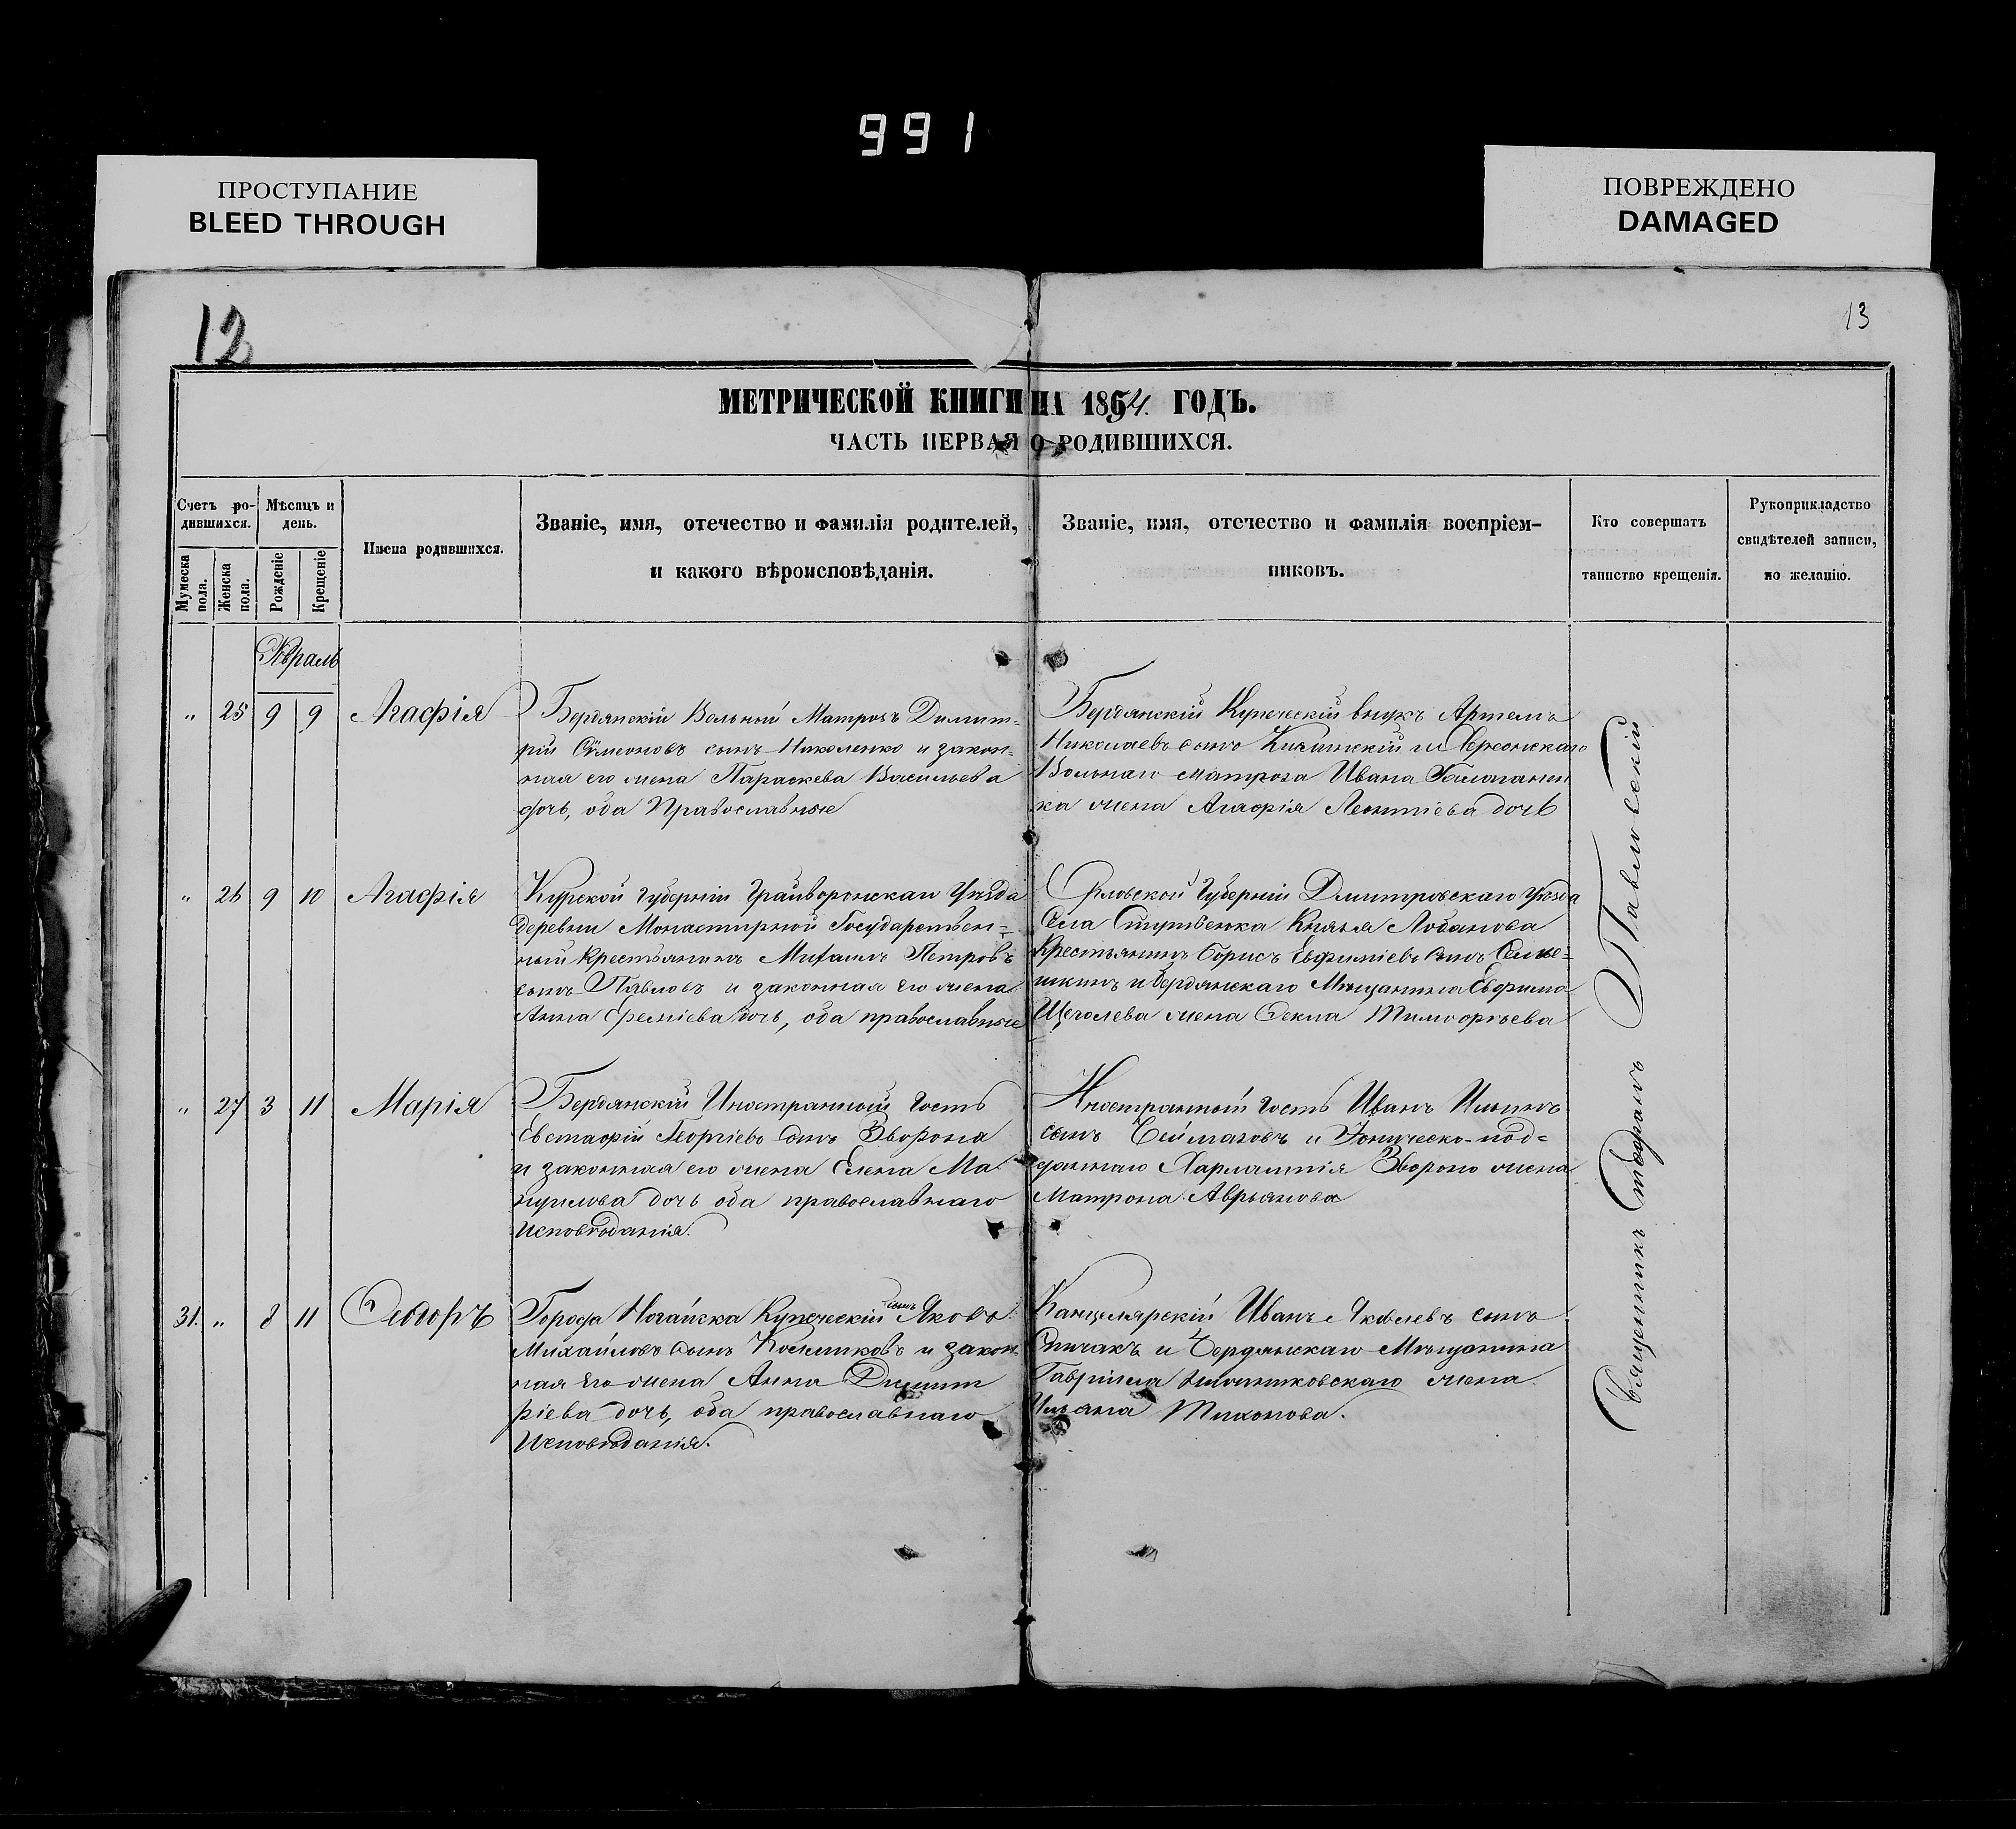 991
ПРОСТУПАНИЕ
BLEED THROUGH
ПОВРЕЖДЕНО
DAMAGED
12
13
МЕТРИЧЕСКОЙ КНИГИ НА 1854. ГОДЪ.
ЧАСТЬ ПЕРВАЯ О РОДИВШИХСЯ.
Счетъ ро-
дившихся.
Мужеска пола.
Женска пола.
Мѣсяцъ и
день.
Рожденіе
Крещеніе
Имена родившихся.
Званіе, имя, отечество и фамилія родителей,
и какого вѣроисповѣданія.
Званіе, имя, отечество и фамилія воспріем-
никовъ.
Кто совершатъ
таинство крещенія.
Рукоприкладство
свидѣтелей записи,
по желанію.
Февраль
" 25 9 9 Агафія
Бердянскій Вольный Матрозъ Димит-
рій Сѵмеоновъ сынъ Николенко и закон-
ная его жена Параскева Васильева
дочь, оба Православные
Бердянскій Купеческій внукъ Артемъ
Николаевъ сынъ и Херсонскаго
Вольнаго матроза Ивана
ка жена Агафія Леонтіева дочь
" 26 9 10 Агафія
Курской Губерніи Грайворонскаго Уѣзда
деревни Монастырной Государствен-
ный Крестьянинъ Михаилъ Петровъ
сынъ Павловъ и законная его жена
Анна дочь, оба православные
Орловской Губерніи Дмитровскаго Уѣзда
Села Князя Лобанова
Крестьянинъ Борисъ Евфиміевъ сынъ Селе-
шкинъ и Бердянскаго Мѣщанина Евфима
Щеголева жена Фекла Тимофѣева
" 27 3 11 Марія
Бердянскій Иностранный Гость
Евстафій Георгіевъ сынъ Зворона
и законная его жена Елена Ма
нуилова дочь оба православнаго
исповѣданія.
Иностранный Гость Иванъ Ильинъ
сынъ и Іоническо-под-
даннаго Харлампія Зворона жена
Матрона Аврьянова
31. " 8 11 Ѳеодоръ
Города Ногайска Купеческій сынъ Яковъ
Михайловъ сынъ и закон-
ная его жена Анна Димит
ріева дочь, оба православнаго
исповѣданія.
Канцелярскій Иванъ Яковлевъ сынъ
Спичакъ и Бердянскаго Мѣщанина
Гавріила жена
Ульяна Тихонова.
Священникъ Стефанъ Павловскій